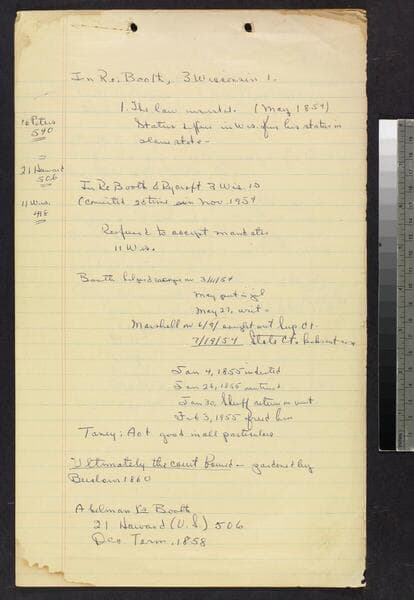 In Re: Booth, 3 Wisconsin 1.
1. The law invalid. (May 1854)
Status in Wis. his status in
slave state -
16 Peters
540
21 Howard
506
11 Wis.
498
In Re Booth & Rycroft 3 Wis.
(Convicted
Refused to accept mandate
11 Wis.
Booth helped on 3/11/54
May put in jail
May 27, writ -
Marshall on 6/9/ sought writ Sup Ct.
7/19/54 State Ct.
Jan 4, 1855 indicted
Jan 26, 1855
Jan 30, Sheriff return on writ
Feb 3, 1955 freed him
Taney: Act good in all particulars
Ultimately the court bound - pardoned by
1860
Abelman Vs Booth
21 Howard (U.S) 506
Dec. Term, 1858